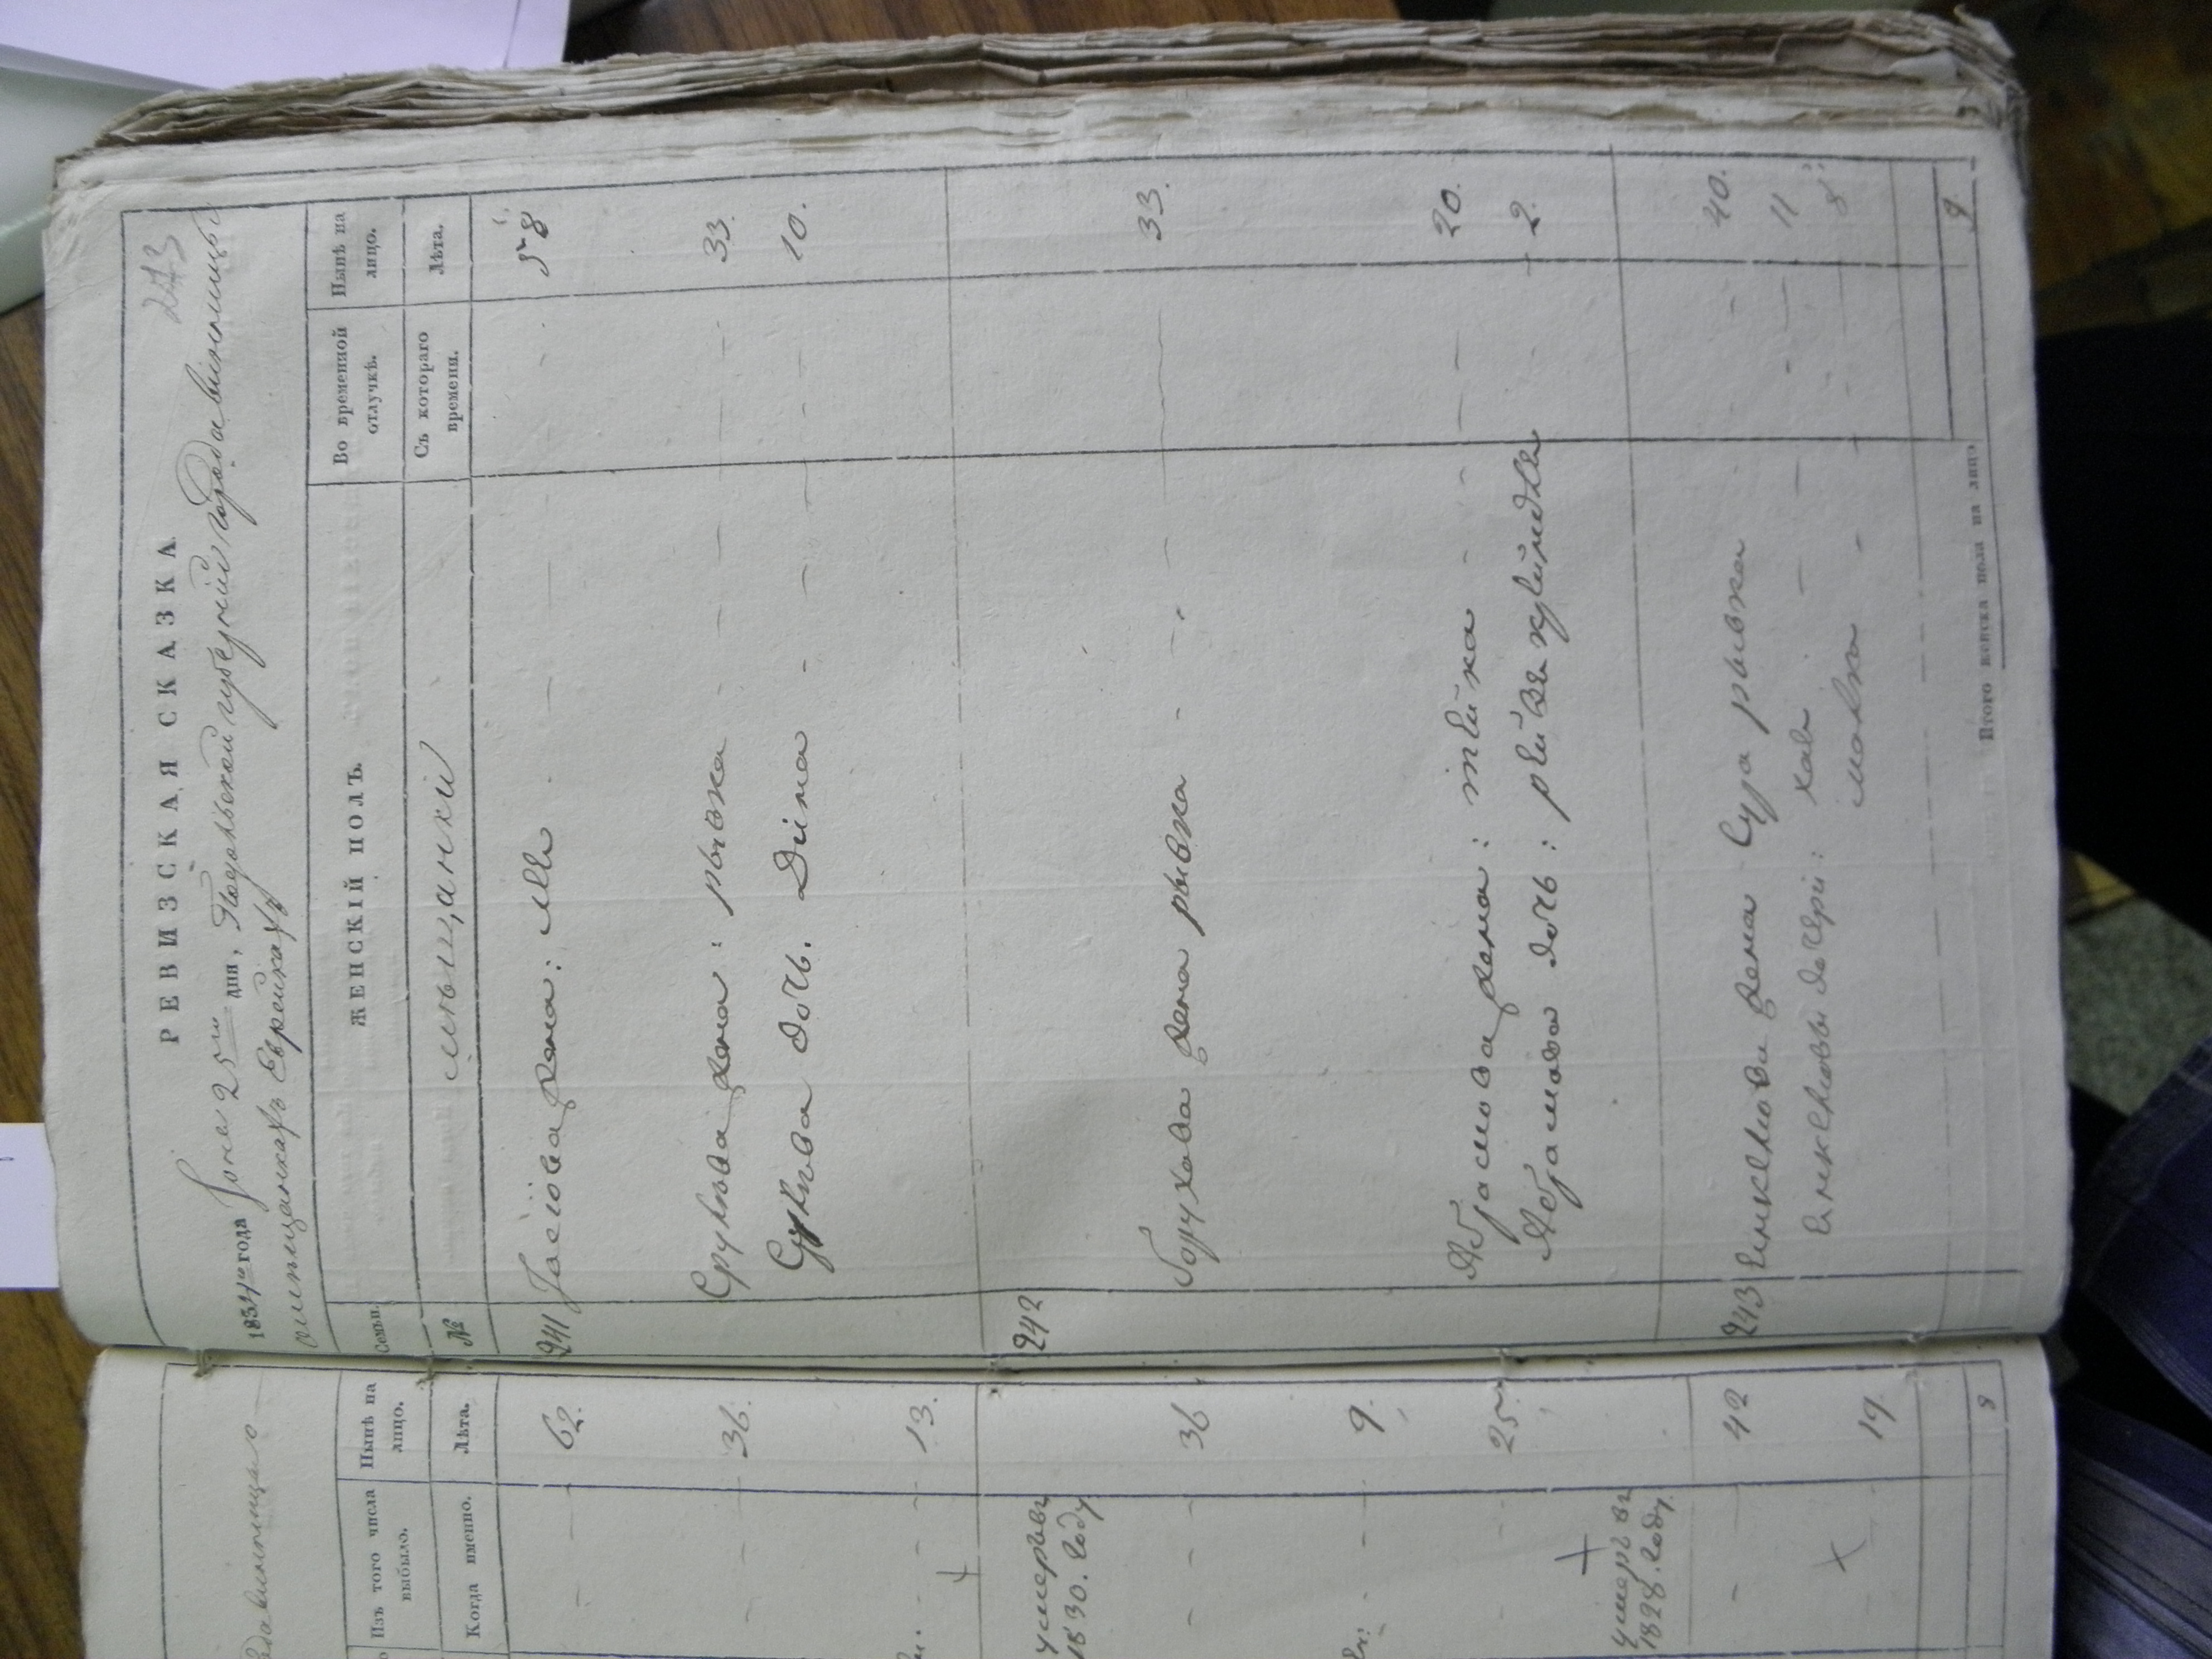 213
РЕВИЗСКАЯ СКАЗКА
1834го года Іюня 25го дня, Подольской губерніи города винницы
о мещанкахъ Еврейкахъ
Семьи.
ЖЕНСКІЙ ПОЛЪ.
Во временной отлучкѣ.
Нынѣ на лицо.
№
мещанки
Съ котораго времени.
Лѣта.
241 жена: 58
жена: рывка - - - 33.
дочь. Дина - - - 10.
242
борухова жена рывка - - 33.
Абрамова жена: - - - 20.
Абрамова дочь: - 2.
243 жена Сура рывка - - 40.
дочери: хая - - - 11
малка - - - 8
Итого женска пола на лицо 9
Изъ того числа выбыло.
Нынѣ на лицо.
Когда именно.
Лѣта.
- - 62.
- - - 36.
13.
умеръ въ
1830. году
- - - 36
- - 9.
- - 25
умеръ въ
1828. году.
- - 42
19
8